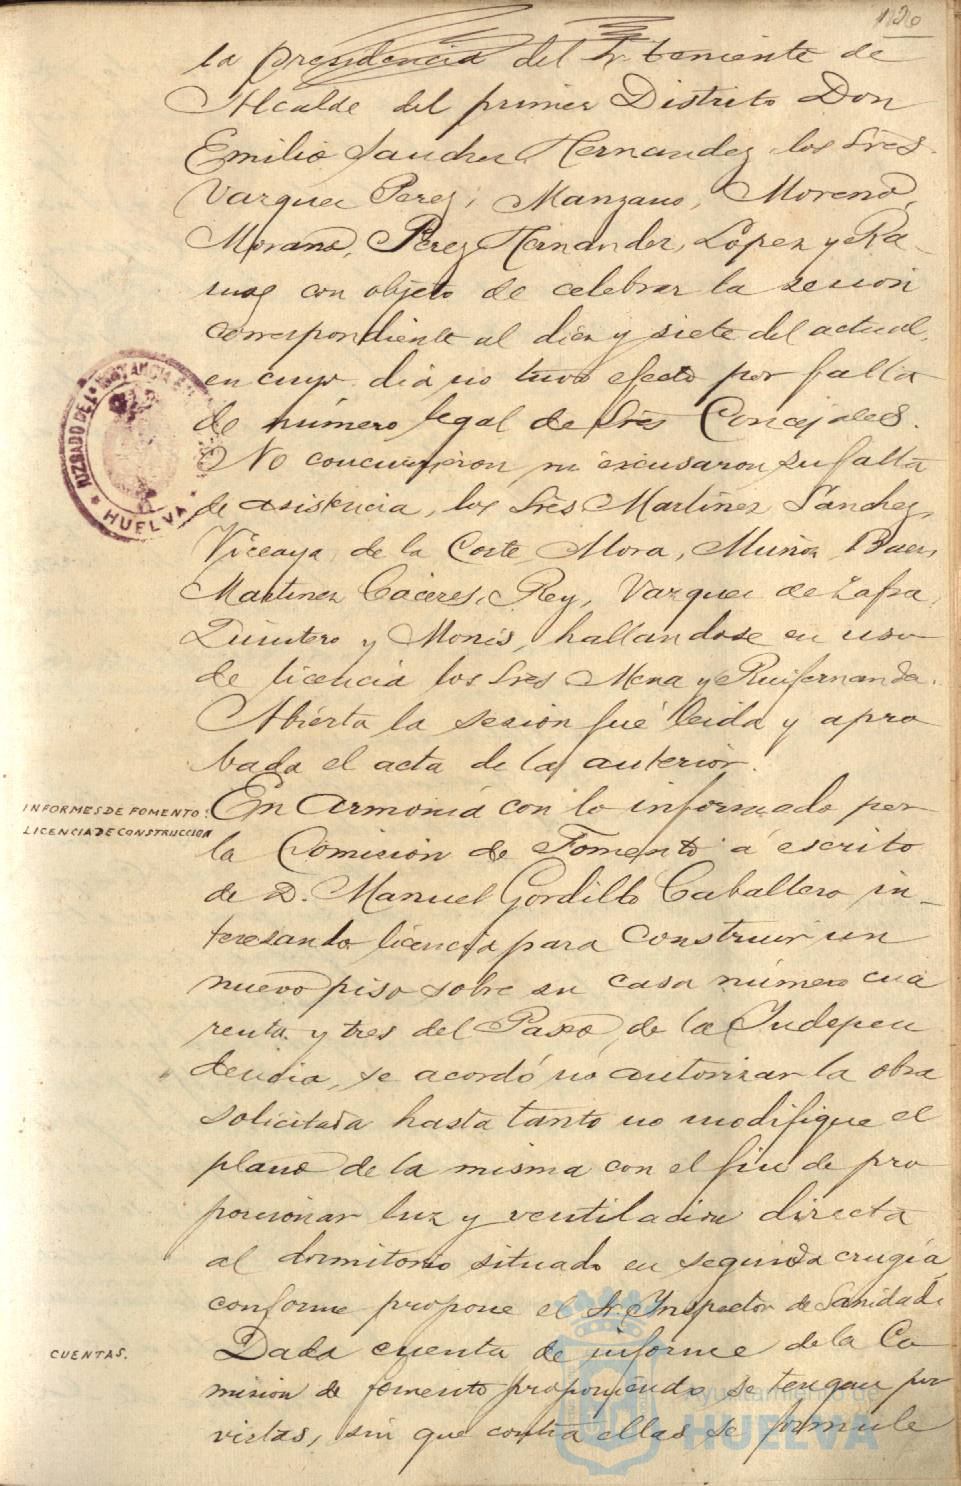 126
la presidencia del Sr. teniente de
Alcalde del primer Distrito Don
Emilio Sanchez Hernandez los Sres.
Vazquez Perez, Manzano, Moreno,
Morano, Perez Hernandez, López y Ra-
mos con objeto de celebrar la sesion
correspondiente al diez y siete del actual,
en cuyo dia no tuvo efecto por falta
de número legal de Sres Concejales.
No concurrieron ni excusaron su falta
de asistencia, los Sres Martinez Sánchez,
Vizcaya, de la Corte Mora, Muñoz Baez,
Martinez Cáceres, Rey, Vazquez de Zafra,
Quintero y Monis, hallandose en uso
de licencia los Sres Mena y Ruifernandez.
Abierta la sesion fué leida y apro
bada el acta de la anterior.
INFORMES DE FOMENTO:
LICENCIA DE CONSTRUCCION
En armonia con lo informado por
la Comision de Fomento á escrito
de D. Manuel Gordillo Caballero in-
teresando licencia para construir un
nuevo piso sobre su casa número cua
renta y tres del Paseo de la Indepen
dencia, se acordó no autorizar la obra
solicitada hasta tanto no modifique el
plano de la misma con el fin de pro
porcionar luz y ventilacion directa
al dormitorio situado en segunda crugía,
conforme propone el Sr. Inspector de Sanidad.
CUENTAS.
Dada cuenta de informe de la Co
mision de fomento proponiendo se tengan por
vistas, sin que contra ellas se formule
JUZGADO DE 1ª INSTANCIA
* HUELVA *
Ayuntamiento de
HUELVA